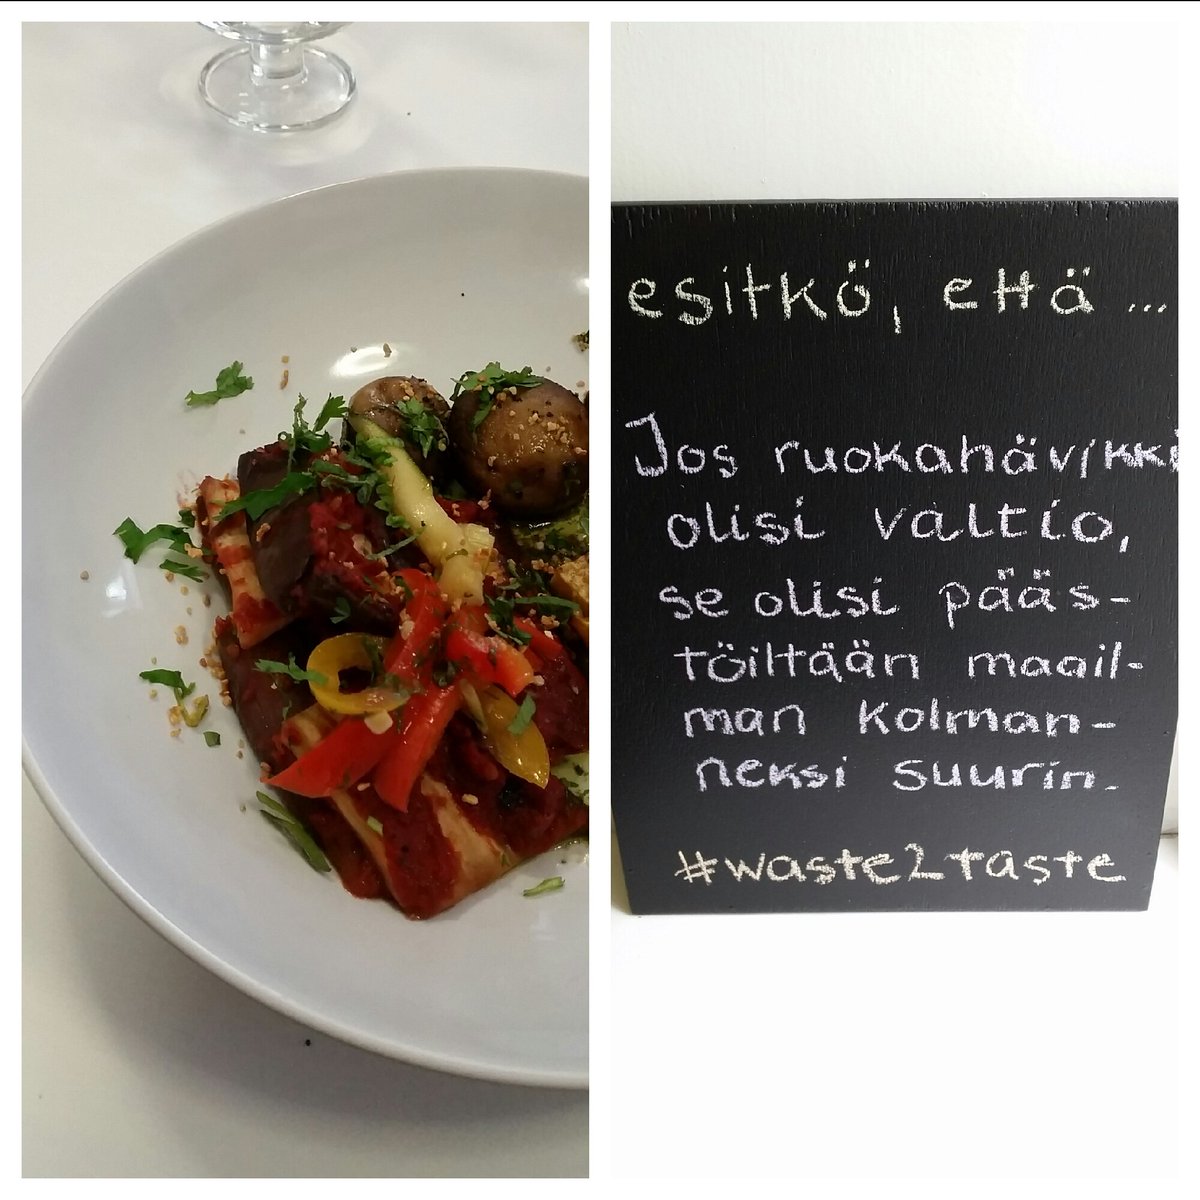 esitkö, että ...
Jos ruokahävikki
olisi valtio,
se olisi pääs-
töiltään maail-
man kolman-
neksi suurin.
#waste2taste